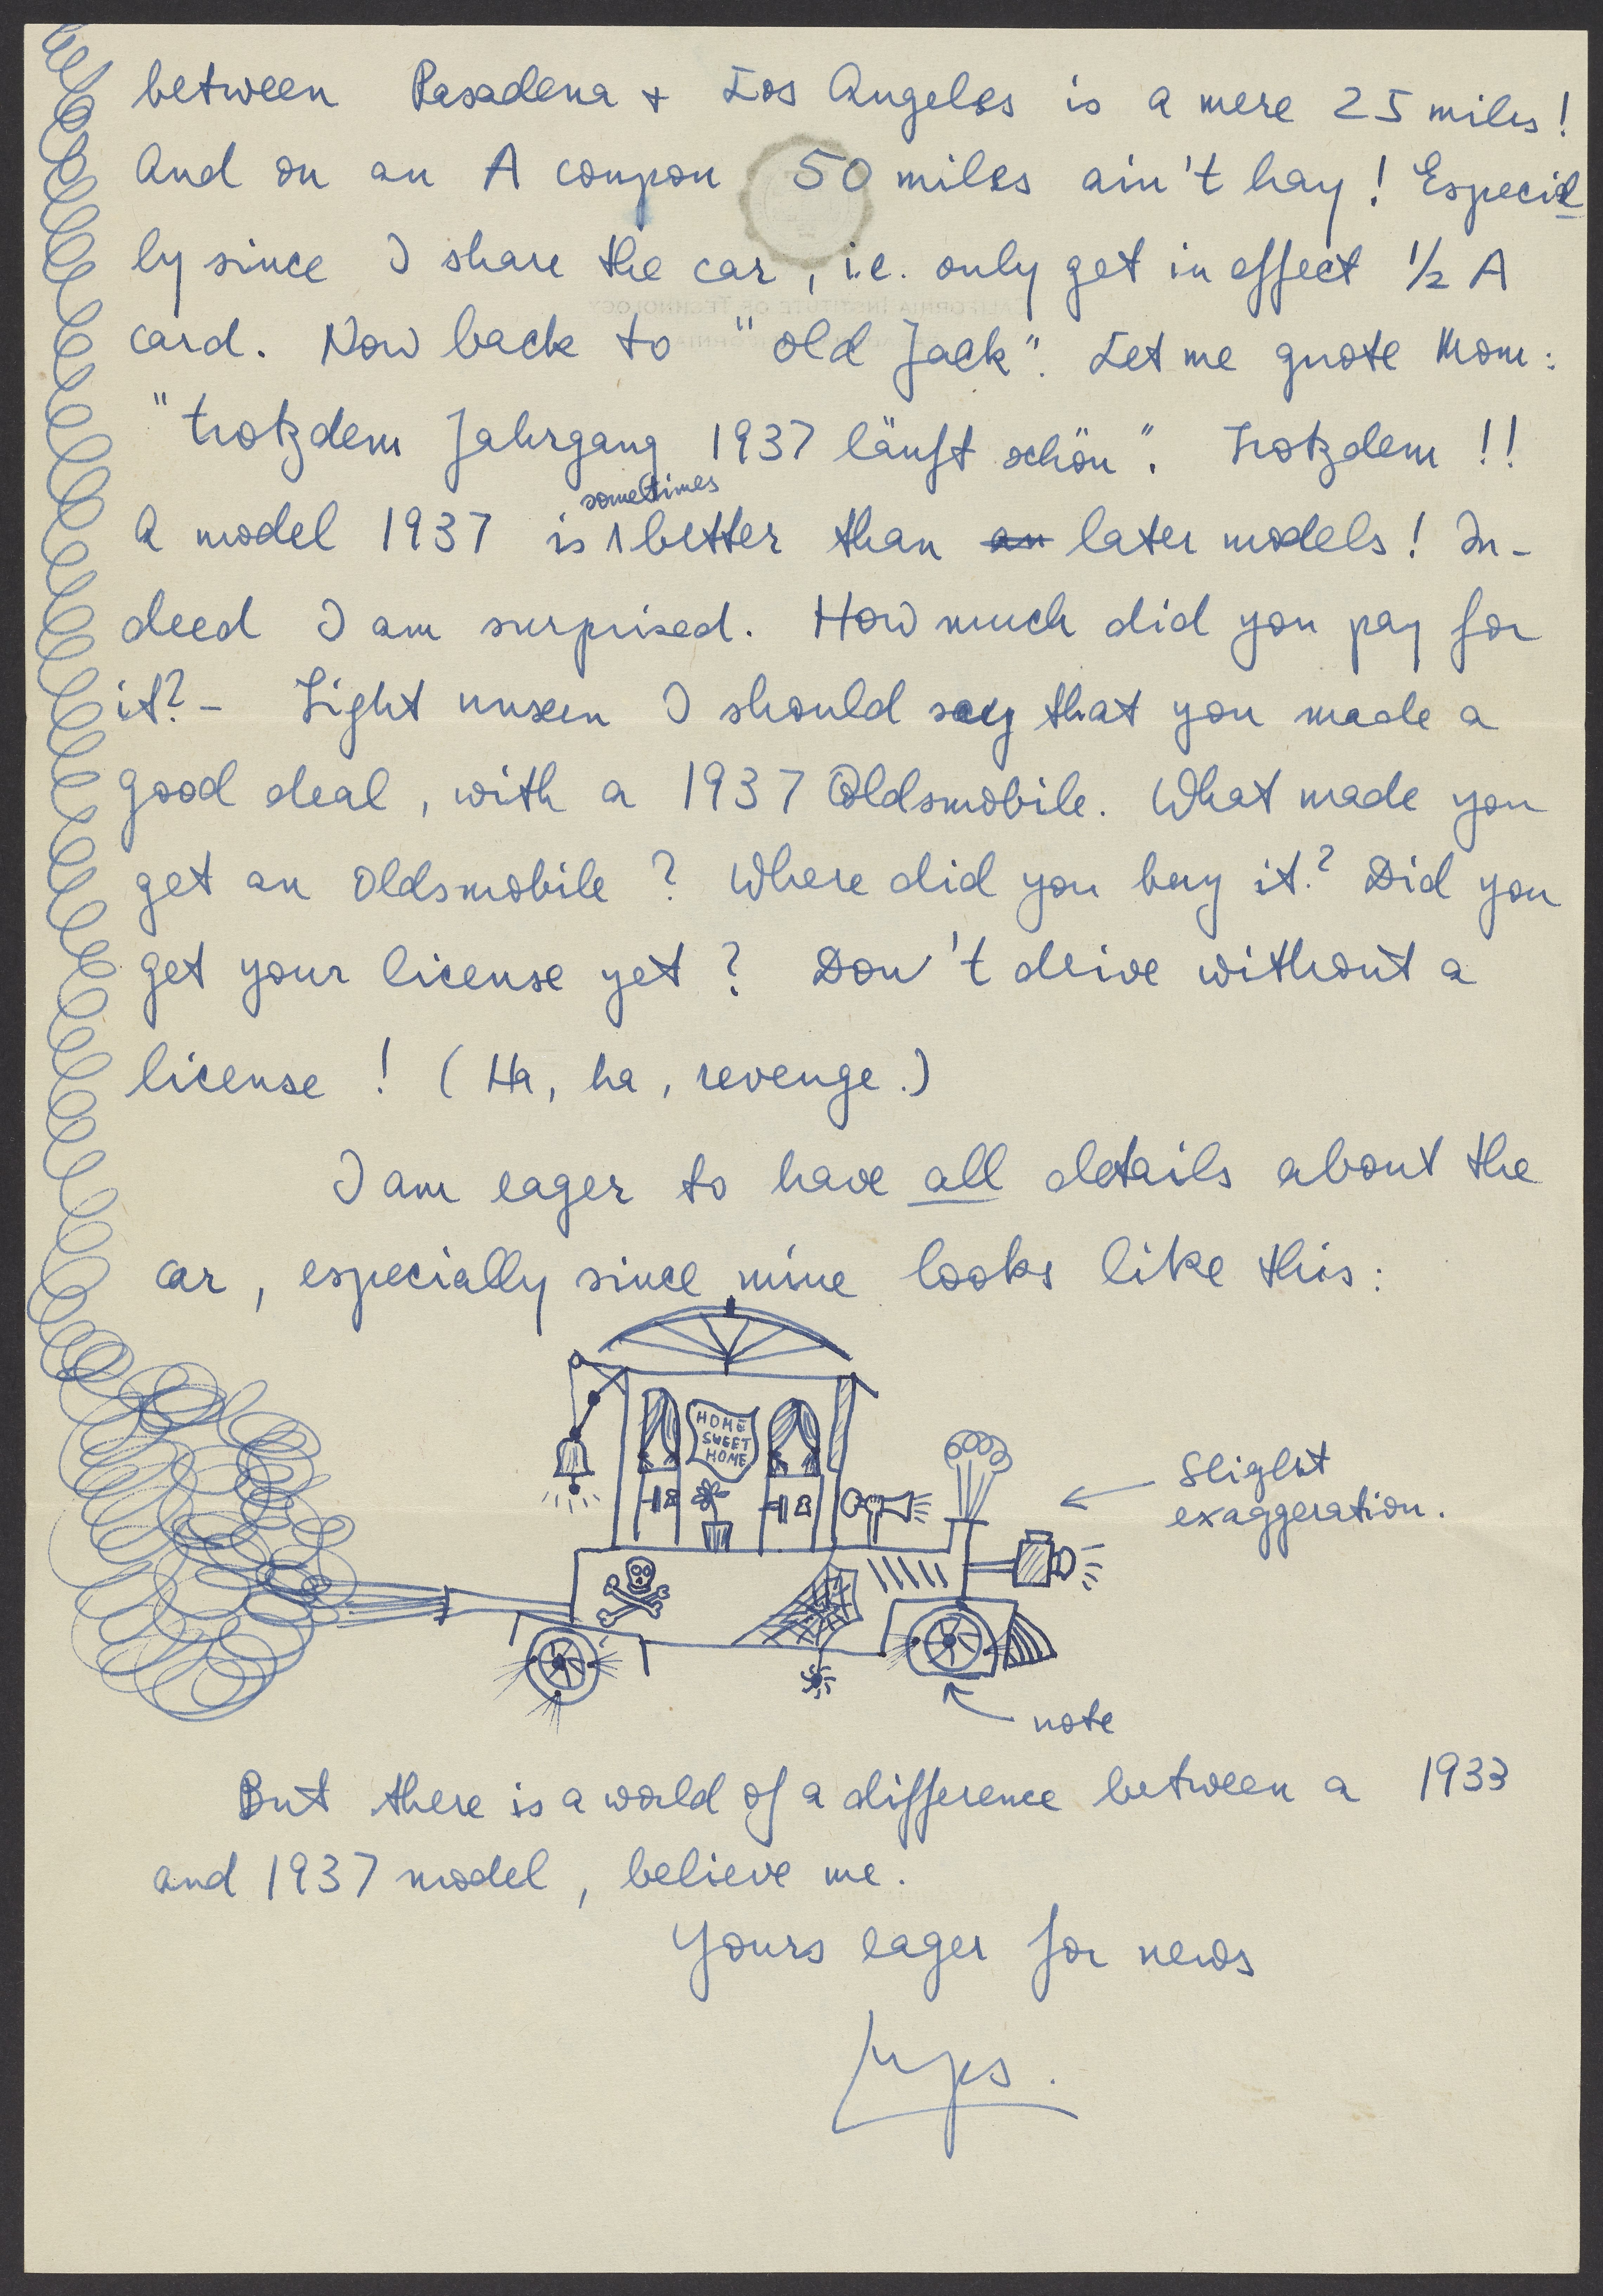 between Pasadena + Los Angeles is a mere 25 miles!
And on an A coupon 50 miles ain't hay! Especial
ly since I share the car, i.e. only get in effect ½ A
card. Now back to "old Jack". Let me quote Mom:
"trotzdem Jahrgang 1937 läuft schön". Trotzdem!!
sometimes
A model 1937 is better than an later models! In-
deed I am surprised. How much did you pay for
it?- Sight unseen I should say that you made a
good deal, with a 1937 Oldsmobile. What made you
get an Oldsmobile? Where did you buy it? Did you
get your license yet? Don't drive without a
license! (Ha, ha, revenge.)
I am eager to have all details about the
car, especially since mine looks like this:
HOME
SWEET
HOME
Slight
exaggeration.
note
But there is a world of a difference between a 1933
and 1937 model, believe me.
Yours eager for news
CALIFORNIA INSTITUTE OF TECHNOLOGY